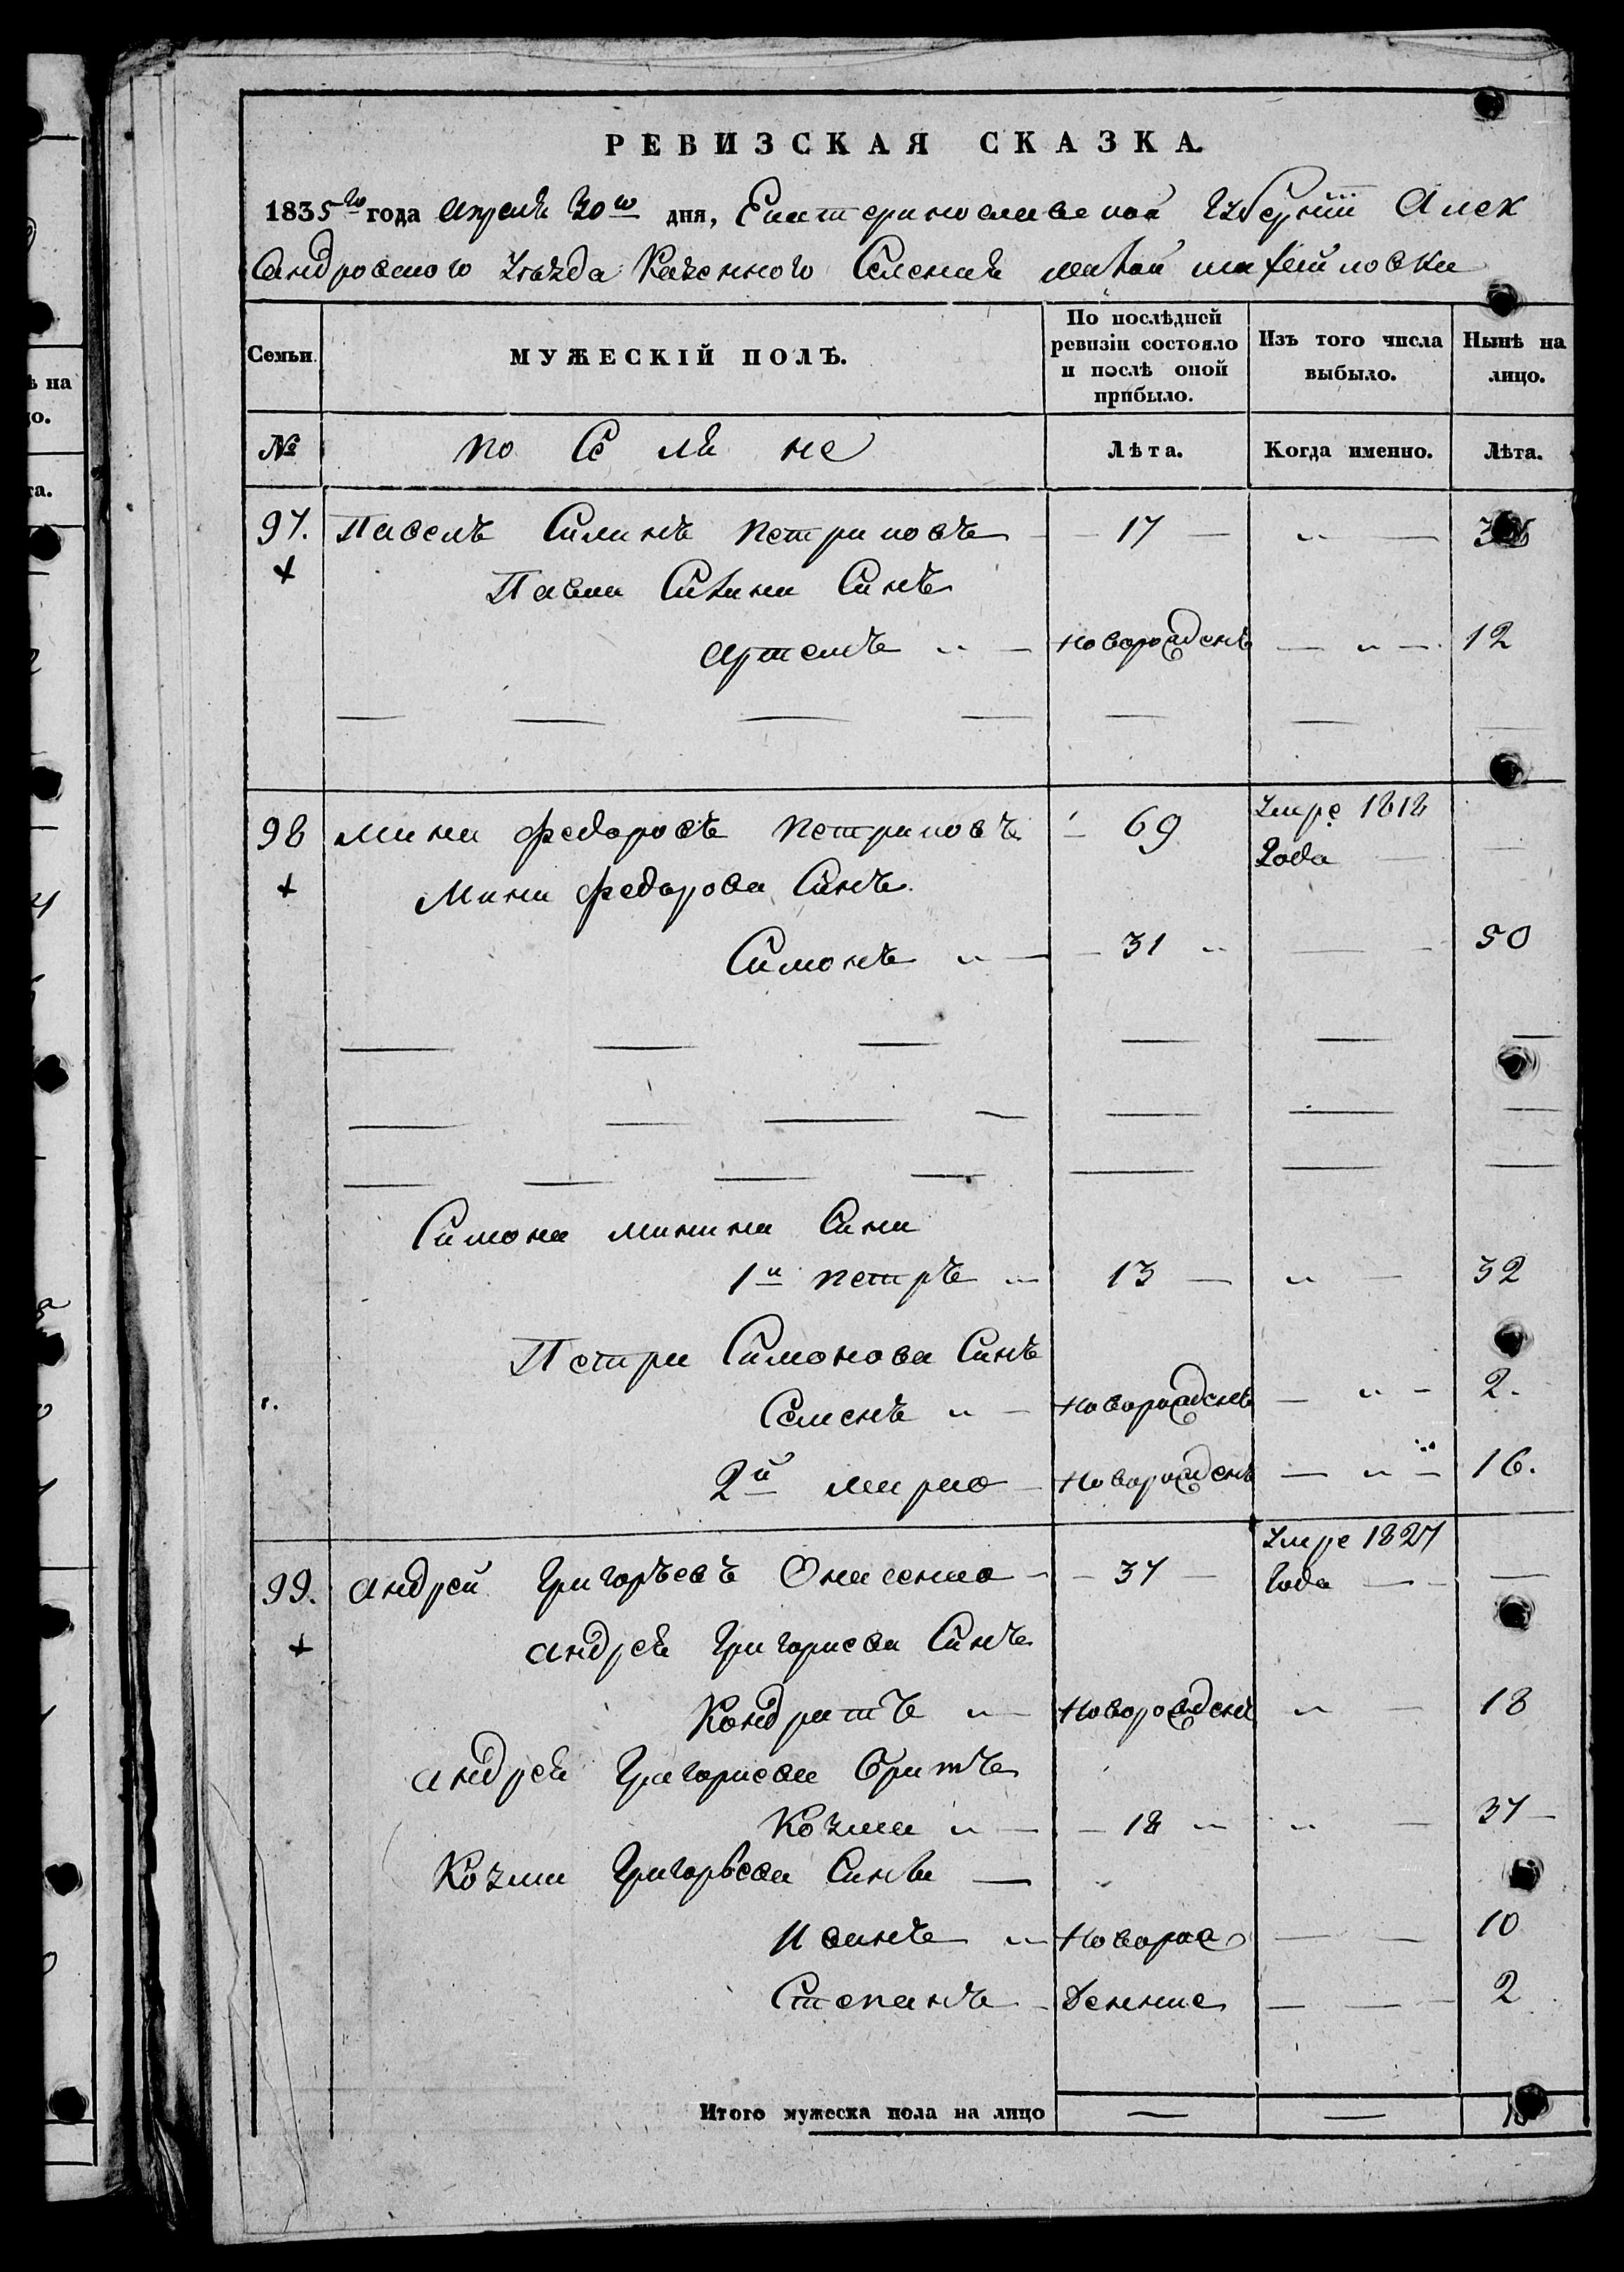 РЕВИЗСКАЯ СКАЗКА.
1835го года Апреля 30го дня, Екатеринославской Губернiи Алек
сандровского Уезда Казенного Селения малой
Семьи. МУЖЕСКIЙ ПОЛЪ. По послѣдней ревизiи состояло и послѣ оной прибыло. Изъ того числа выбыло. Нынѣ на лицо.
№ по Се ля не Лѣта. Когда именно. Лѣта.
97. Павелъ Силинъ Петриковъ 17 „
+ Павла Силина Синъ
Артемъ „ новорожденъ „ 12
98 Мина Федоровъ Петриковъ 69 Умре 1818 Года
+ Мины Федорова Синъ
Симонъ „ 31 „ 50
Симона Минина Сини
1й Петръ „ 13 „ 32
Петра Симонова Синъ
Семенъ „ новорожденъ „ 2.
2й Марко новорожденъ „ 16.
99. Андрей Григорьевъ Онисенко 37 Умре 1827 Года
+ Андрея Григориева Синъ
Кондратъ „ новорожденъ „ 18
Андрея Григориева Братъ
Козма „ 18 „ „ 37
Козмы Григорьева Сины
Иванъ „ новорож 10
Степанъ денние 2
Итого мужеска пола на лицо
ѣ на
о.
та.